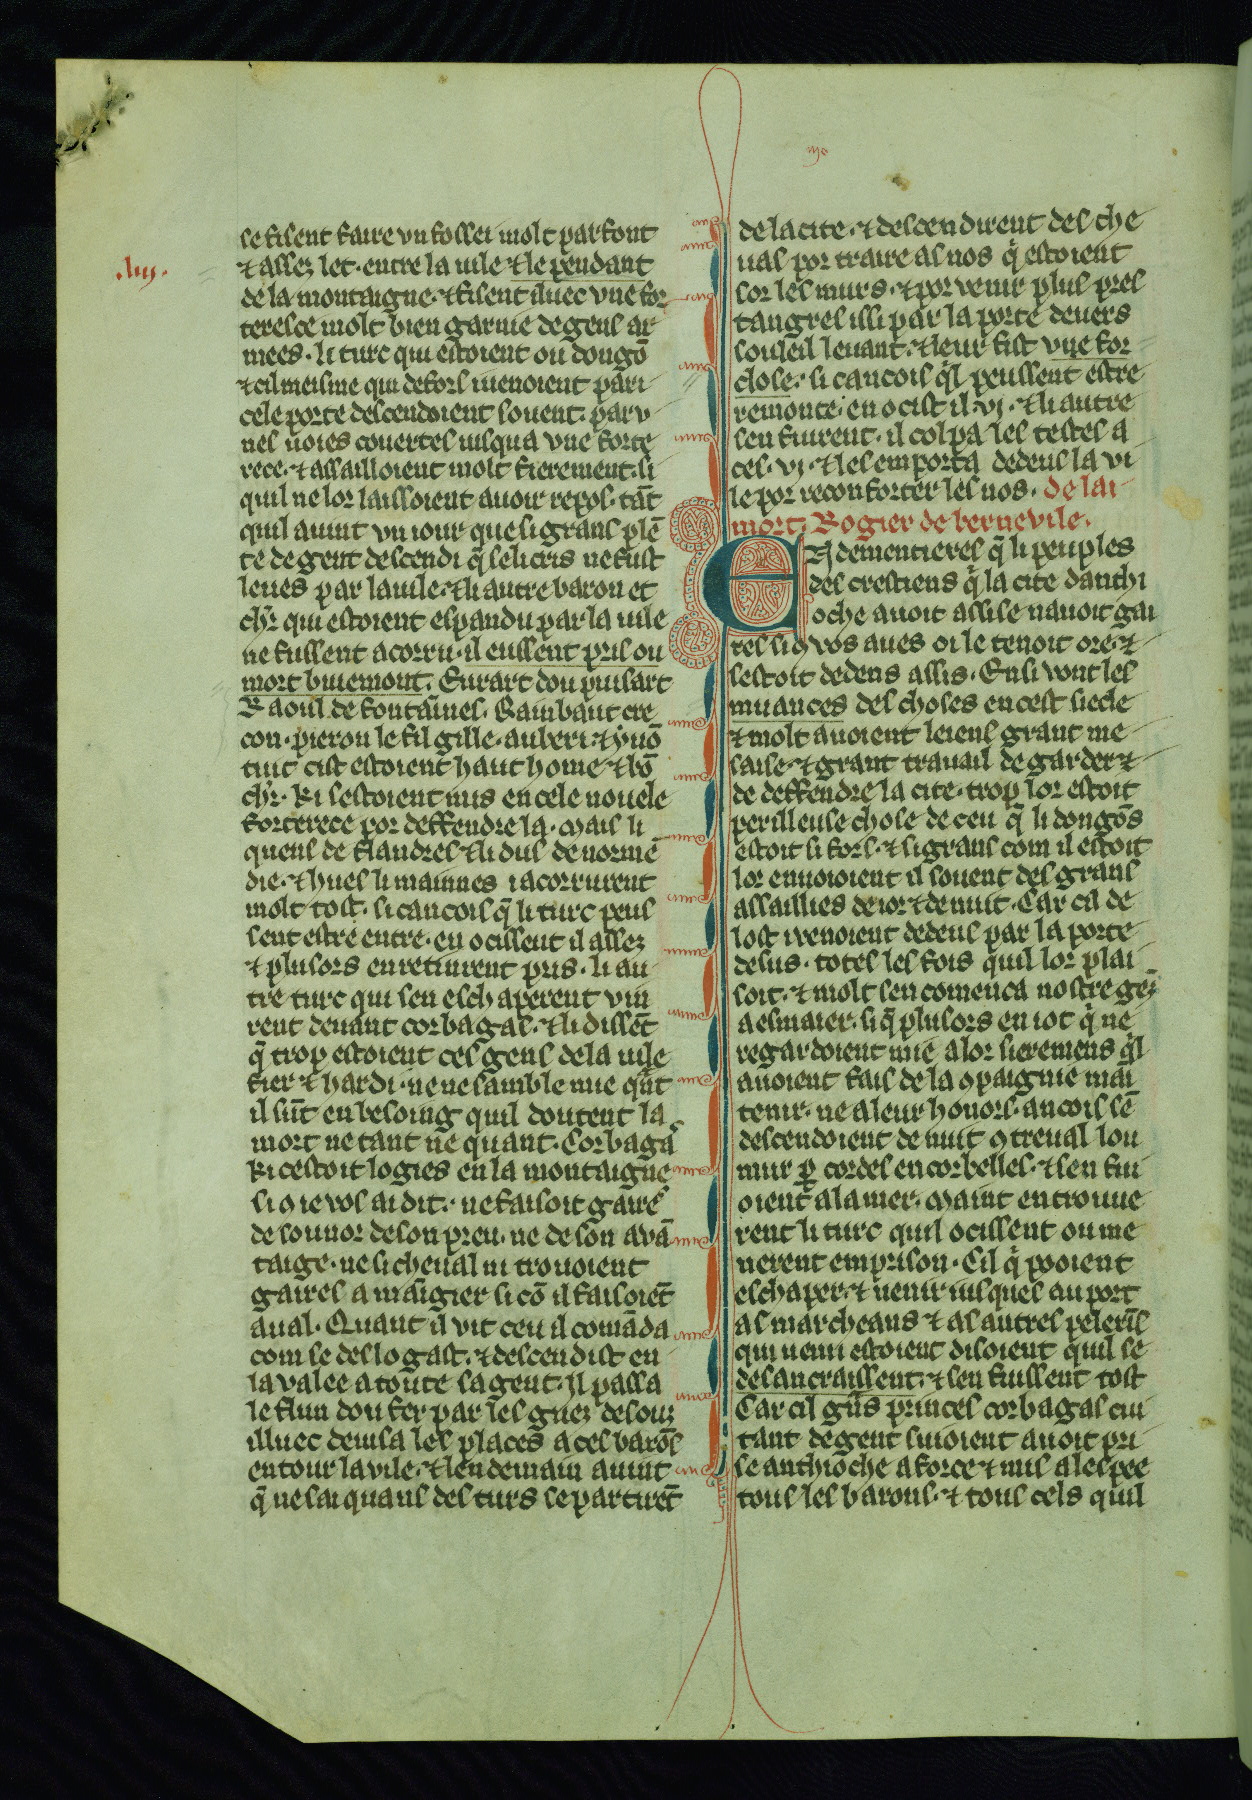 se fisent faire vn fossei molt parfont
⁊ assez let· entre la uile ⁊ le pendant
de la montaigne· ⁊ fisent iluec vne for
teresce molt bien garnie de gens ar
mees· li turc qui estoient ou dongō
⁊ cil meisme qui defors iuenoient par i
cele porte descendoient souent· par v
nes uoies couertes iusqua vne forte
rece· ⁊ assailloient molt fierement· si
quil ne lor laissoient auoir repos· tāt
quil auint vn iour que si grans plē
te de gent descendi q̄ se li cris ne fust
leues par la uile· ⁊ li autre baron et
chr̄· qui estoient espandu par la uile
ne fussent acorru· il eussent pris ou
mort buiemont· Eurart dou puisart
Raoul de fontaines· Raimbaut cre
con· pieron le fil gille· auberi ⁊ yuō
tuit cist estoient haut home ⁊ bō
chr̄· Ki sestoient mis en cele nouele
forterece por deffendre la· Mais li
quens de flandres ⁊ li dus de normē
die· ⁊ hues li mainnes i acorrurent
molt tost· si cancois q̄ li turc peus
sent estre entre· en ocissent il assez
⁊ plusors en retinrent pris· li au
tre turc qui sen eschaperent vin
rent deuant corbagas· ⁊ li dissēt
q̄ trop estoient ces gens de la uile
fier ⁊ hardi· ne ne samble mie quāt
il sūt en besoing quil doutent la
mort ne tant ne quant· Corbaga
Ki cestoit logies en la montaigne
si ꝯ ie vos ai dit· ne faisoit gaire
de sounor de son preu· ne de son auā
taige· ne si cheual ni trouoient
gaires a maingier si cō il faisoiēt
aual· Quant il vit ceu il comāda
com se deslogast· ⁊ descendist en
la valee a toute sa gent· Il passa
le flun dou fer par les guez desouz
illuec deuisa les places a ces barōs
entour la vile· ⁊ lendemain auint
q̄ ne sai quans des turs se partirēt
.liij.
de la cite· ⁊ descendirent des che
uas por traire as nos q̇ estoient
sor les murs· ⁊ por venir plus pres
tangres issi par la porte deuers
souleil leuant· ⁊ leur fist vne for
close· si cancois q̇l peussent estre
remonte· en ocist il .vj· ⁊ li autre
sen fuirent· il colpa les testes a
ces .vj· ⁊ les emporta dedens la vi
le por reconforter les nos· de lai
mort Rogier de bernevile·
En dementieres q̄ li peuples
des crestiens q̇ la cite danthi
oche auoit assise nauoit gai
res si ꝯ vos aues oi le tenoit ore· ⁊
sestoit dedens assis· Ensi vont les
muances des choses en cest siecle
⁊ molt auoient leiens grant me
saise· ⁊ grant trauail de garder ⁊
de deffendre la cite· trop lor estoit
perilleuse chose de ceu q̄ li dongōs
estoit si fors· ⁊ si grans com il estoit
lor enuoioient il souent des grans
assaillies de ior ⁊ de nuit· Car cil de
lost ivenoient dedens par la porte
desus· totes les fois quil lor plai
soit· ⁊ molt sen comenca nostre gēs
a esmaier· si q̄ plusors en iot q̇ ne
regardoient mie a lor sieremens q̇l
auoient fais de la ꝯpaignie mai
tenir· ne a leur honors· ancois sē
descendoient de nuit ꝯtreual lou
mur ꝑ cordes en corbelles· ⁊ sen fui
oient a la mer· Maint en trouue
rent li turc quil ocissent ou me
nerent emprison· Cil q̇ pooient
eschaper· ⁊ uenir iusques au port
as marcheans ⁊ as autres pelerīs
qui uenu estoient disoient quil se
desancraissent· ⁊ sen fuissent tost
Car cil grās princes corbagas cui
tant de gent suioient auoit pri
se anthioche a force ⁊ mis a lespee
tous les barons· ⁊ tous cels quil